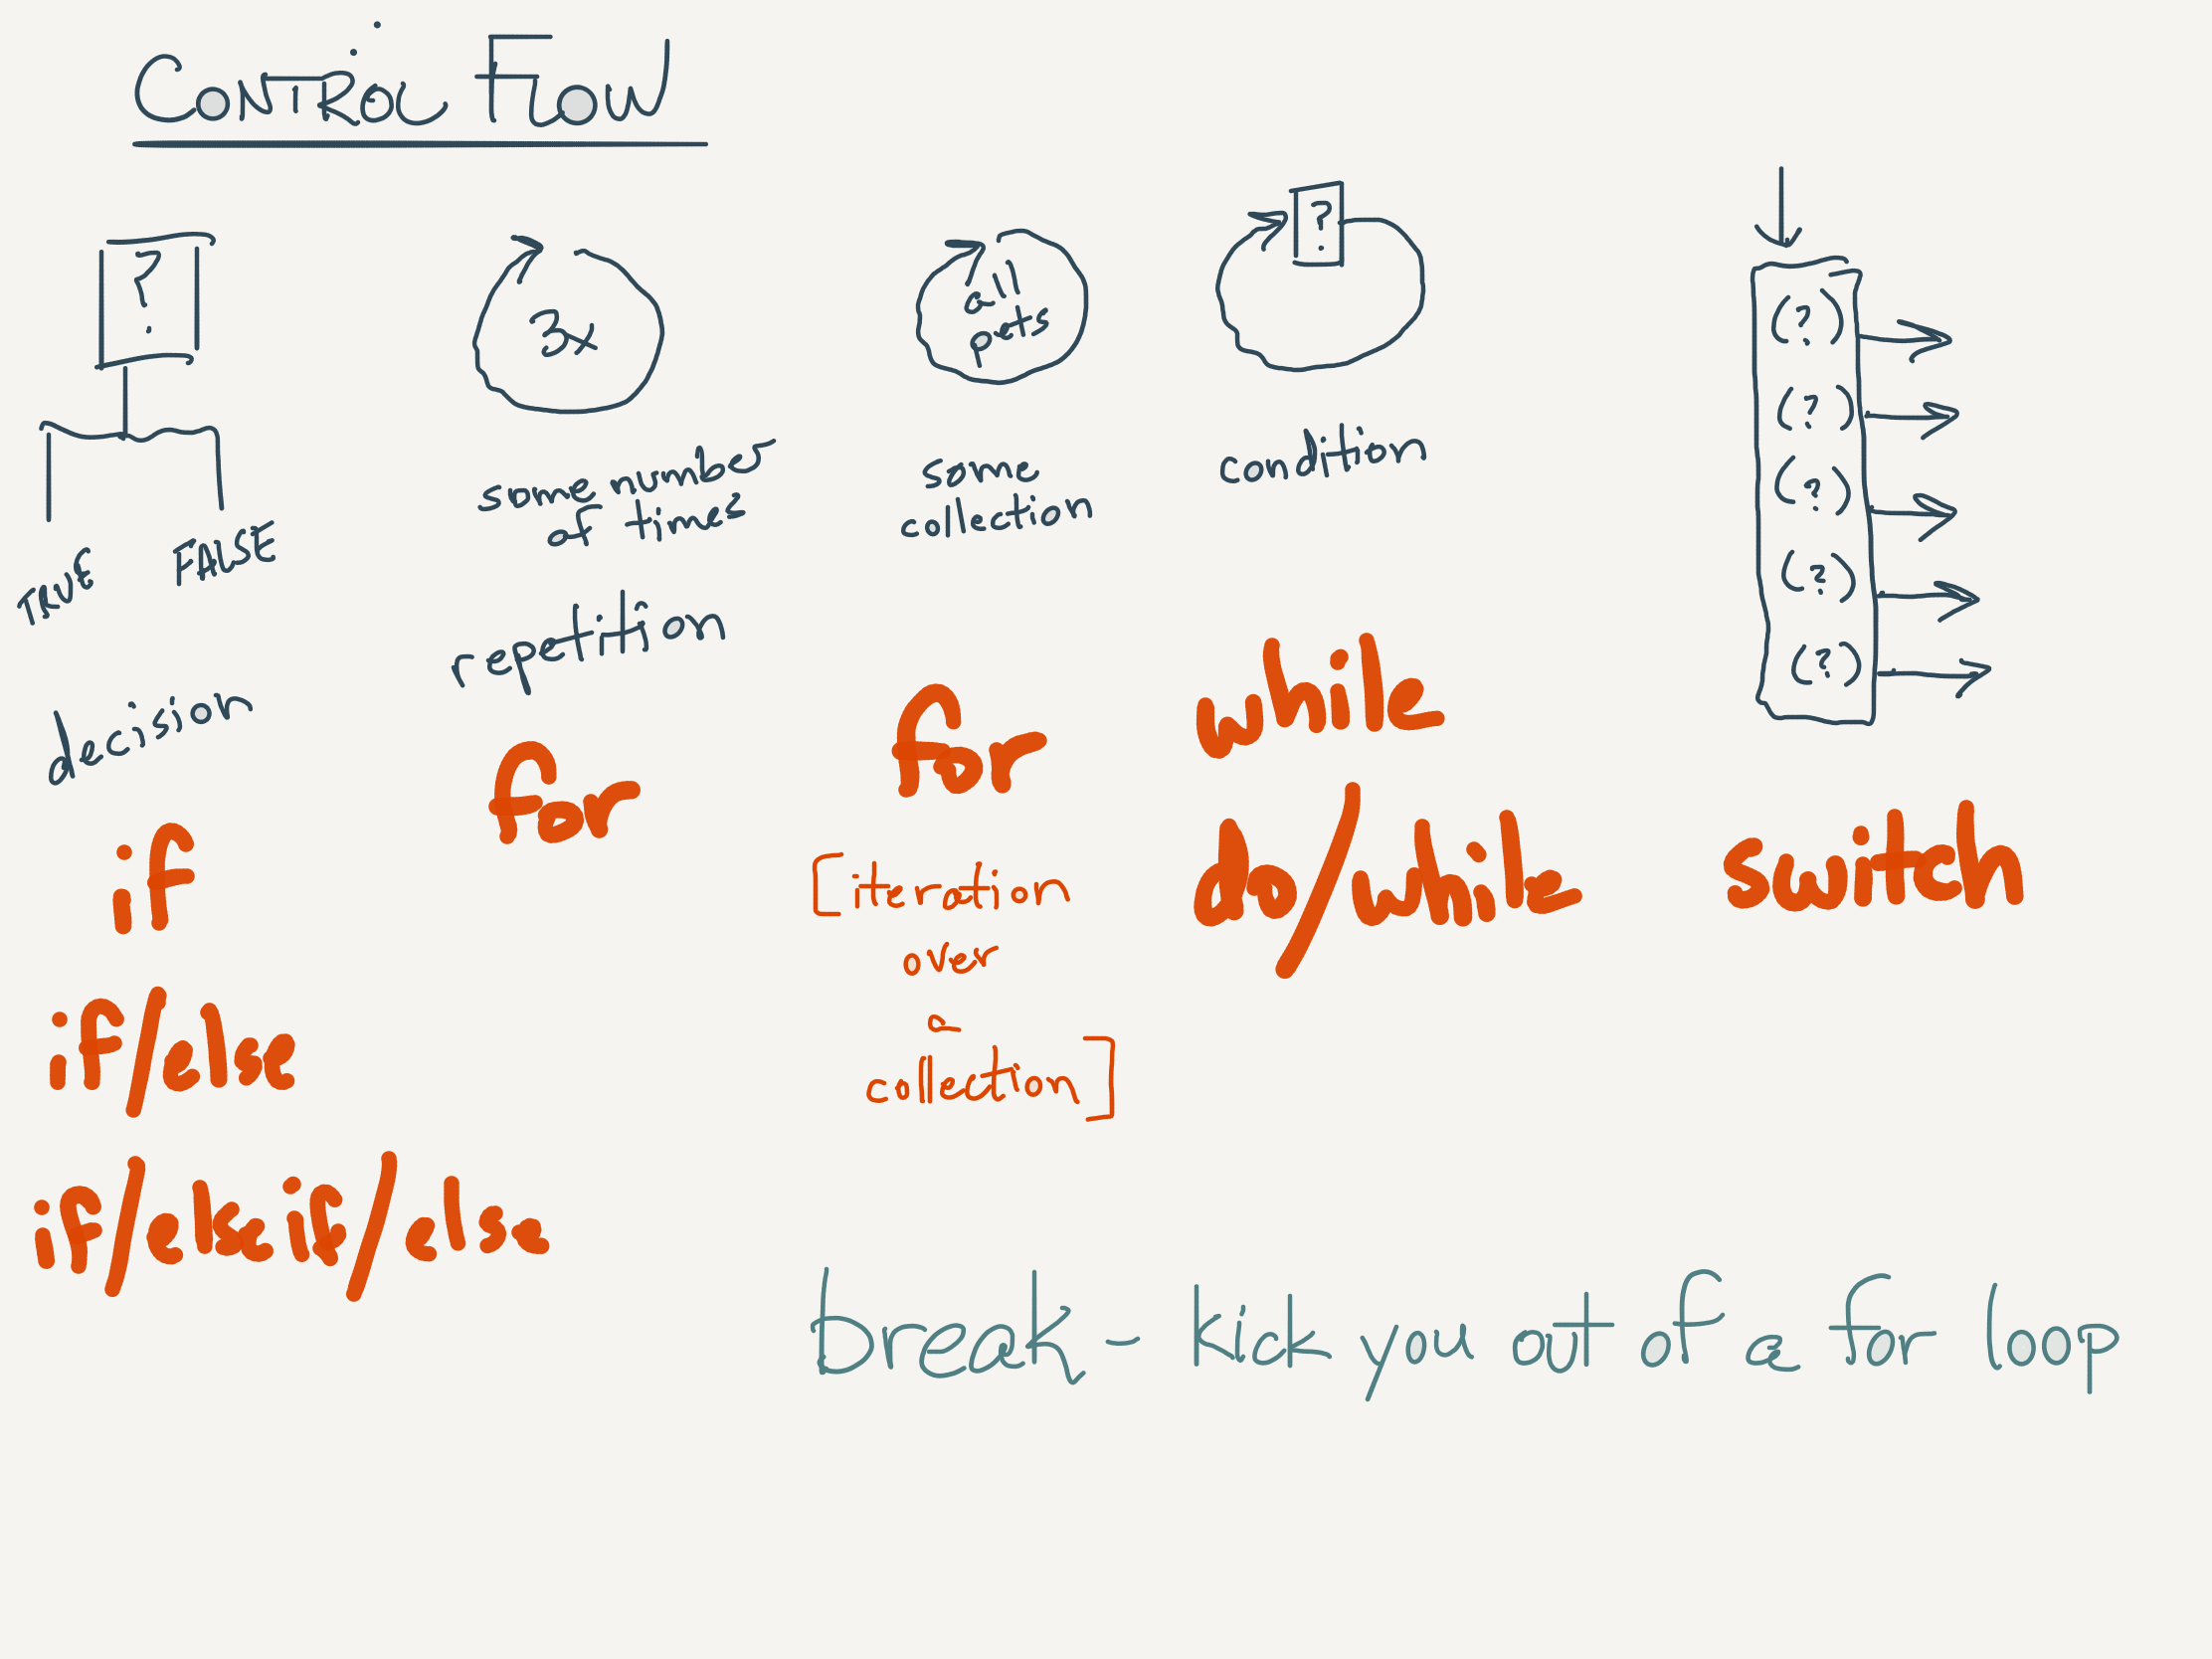 CONTROL FLOW
?
TRUE
FALSE
decision
if
if/else
if/else if/else
3x
some number
of times
repetition
for
all
pets
some
collection
for
[iteration
over
a
collection]
?
condition
while
do/while
(?)
(?)
(?)
(?)
(?)
switch
break - kick you out of a for loop